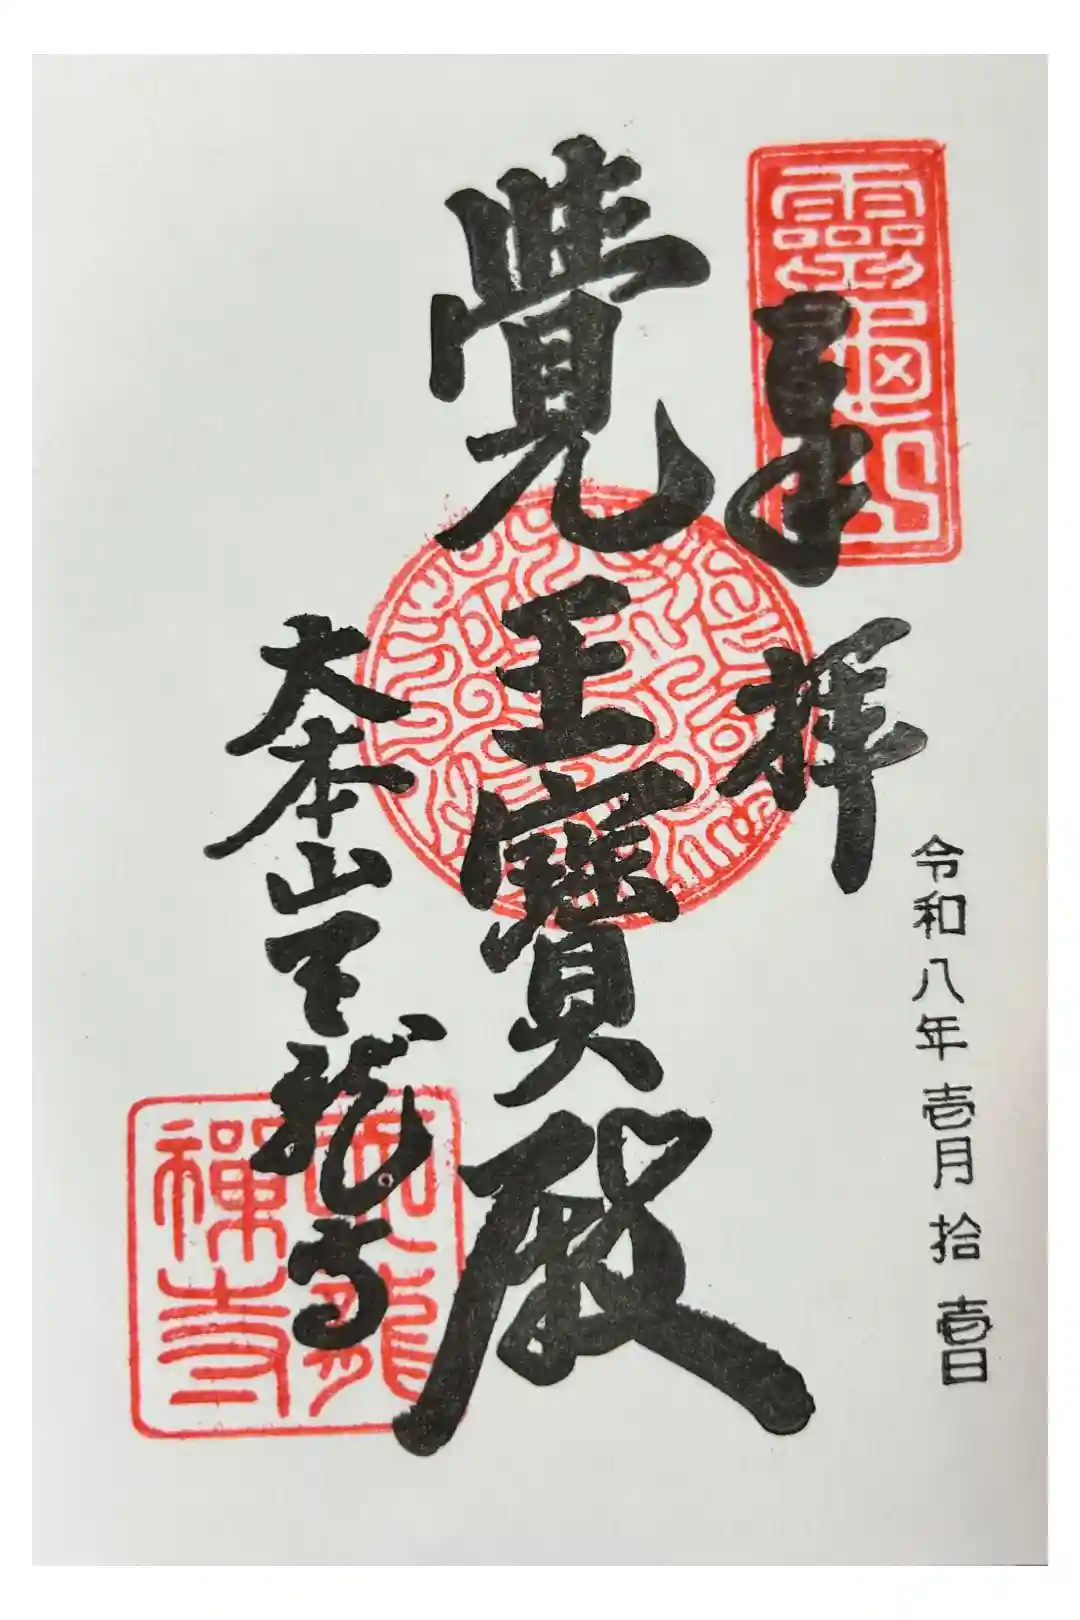 靈龜山
奉拝
令和八年壱月拾壱日
覺王寶殿
大本山天龍寺
天龍
禅寺